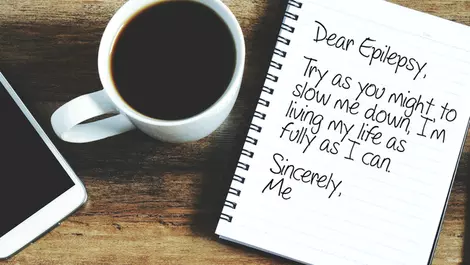 Dear Epilepsy,
Try as you might to
slow me down, I'm
living my life as
fully as I can.
Sincerely,
Me